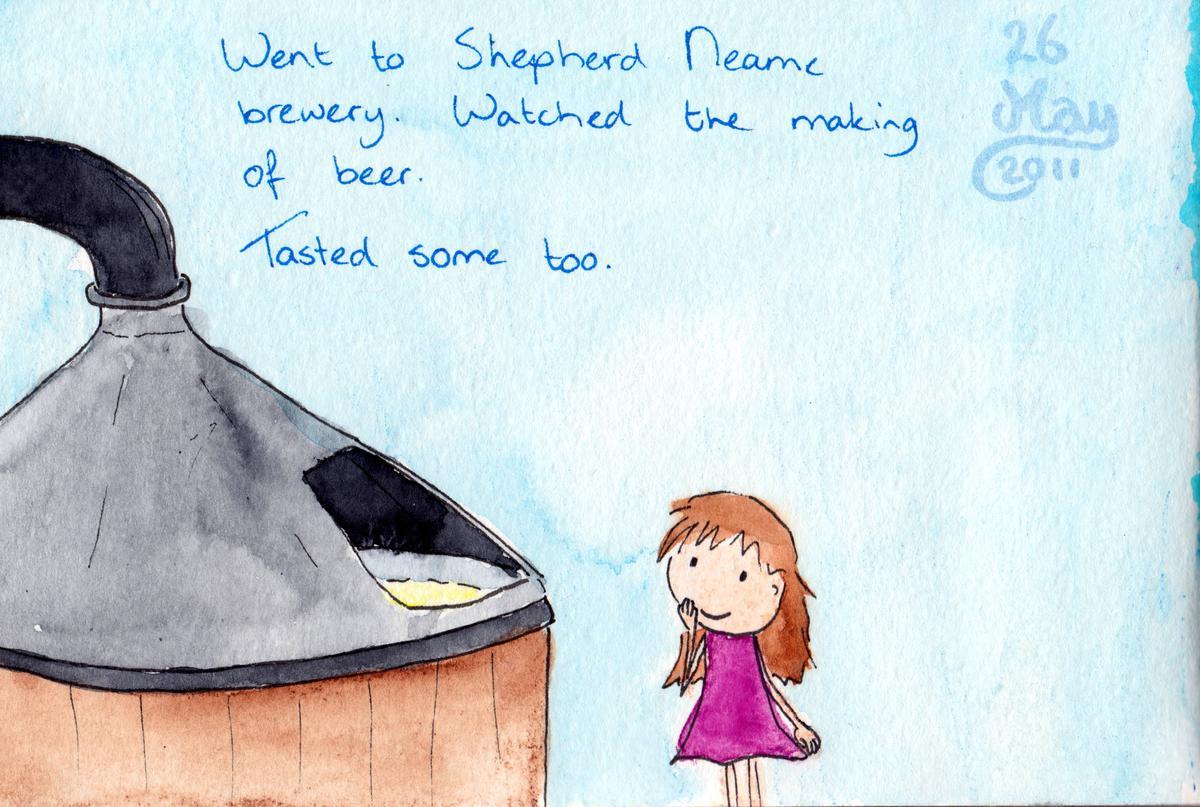 Went to Shepherd Neame
brewery. Watched the making
of beer.
Tasted some too.
26
May
2011